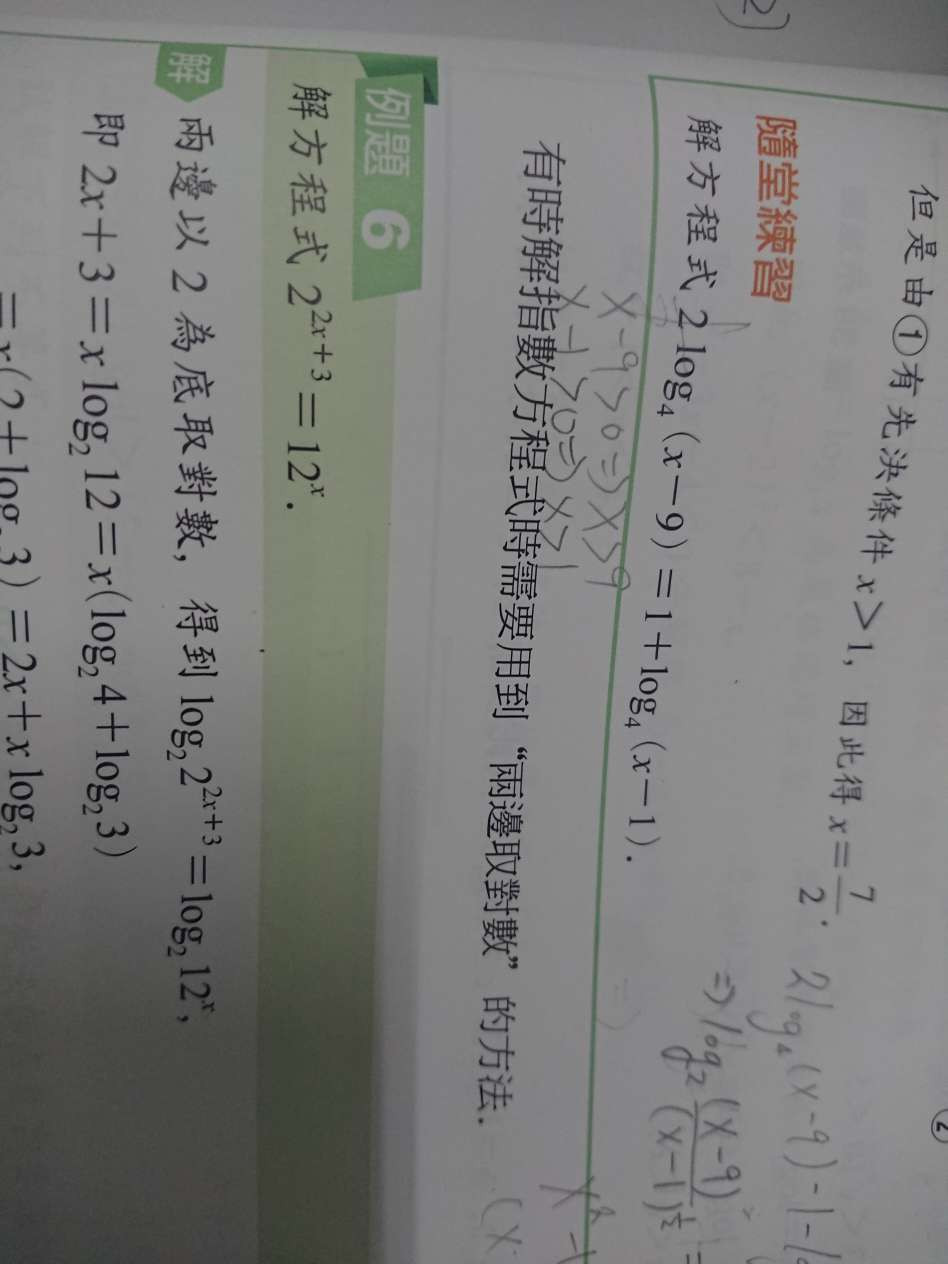 2)
②
但是由①有先決條件 x>1, 因此得 x=7/2.
隨堂練習
2log₄(x-9)-1-
解方程式 2 log₄(x-9)=1+log₄(x-1).
⇒log₂ (x-9)²/(x-1)^½ =
x-9>0⇒x>9
x-1>0⇒x>1
有時解指數方程式時需要用到“兩邊取對數”的方法.
例題 6
解方程式 2^(2x+3)=12^x.
解
兩邊以 2 為底取對數, 得到 log₂2^(2x+3)=log₂12^x,
即 2x+3=x log₂12=x(log₂4+log₂3)
=x(2+log₂3)=2x+x log₂3,